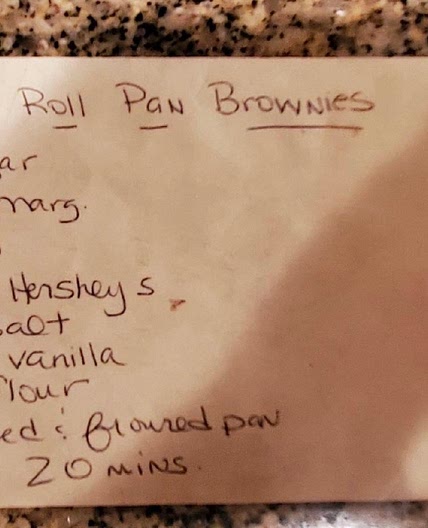 Roll Pan Brownies
ar
marg.
Hershey s
salt
vanilla
flour
ed & floured pan
20 mins.